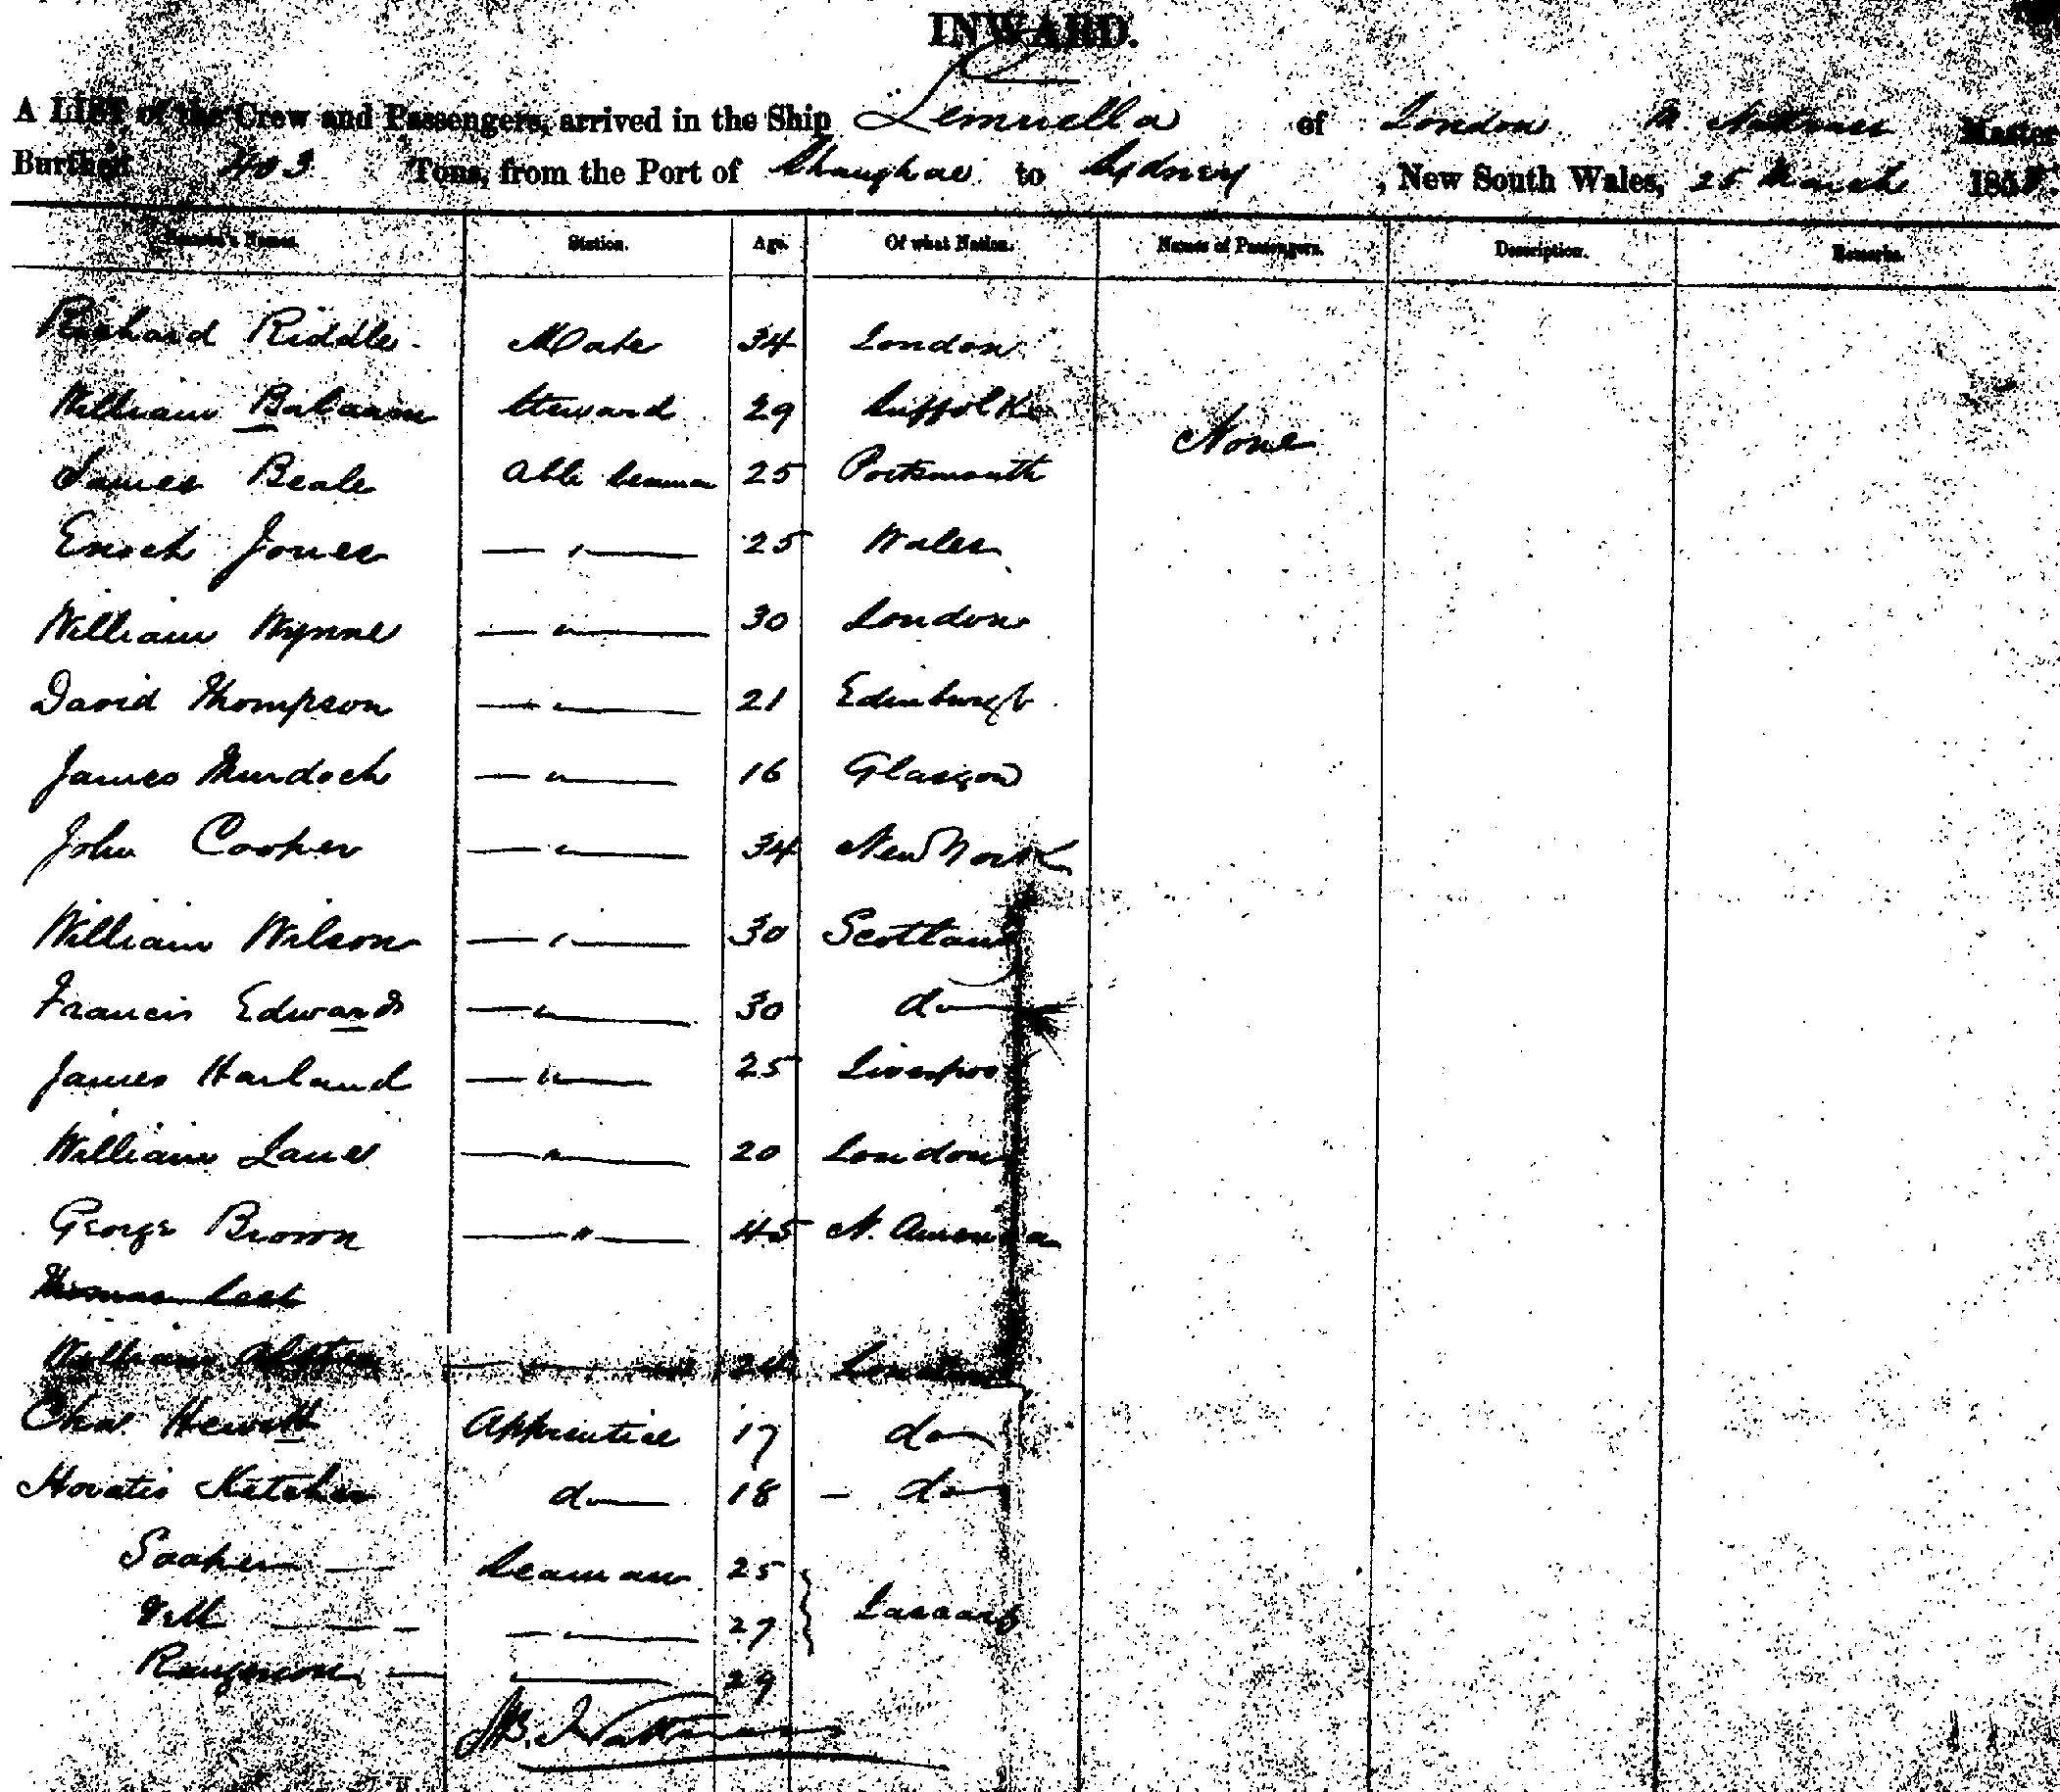 INWARD.
A LIST of the Crew and Passengers, arrived in the Ship Lemuella of London M. Master
Burthen 403 Tons, from the Port of Shanghae to Sydney, New South Wales, 25 March 185
Names. Station. Age. Of what Nation. Names of Passengers. Description. Remarks.
Richard Riddle Mate 34 London
William Balaam Steward 29 Suffolk
None
James Beale Able Seaman 25 Portsmouth
Enoch Jones — " — 25 Wales
William Wynne — " — 30 London
David Thompson — " — 21 Edinburgh
James Murdoch — " — 16 Glasgow
John Cooper — " — 34 New York
William Wilson — " — 30 Scotland
Francis Edwards — " — 30 do
James Harland — " — 25 Liverpool
William Lane — " — 20 London
George Brown — " — 45 N. America
Thomas
William — " — 24 London
Chas Hewitt Apprentice 17 do
Horatio Ketcher do 18 — do
Seaman 25
— " — 27 Lascars
— " — 29